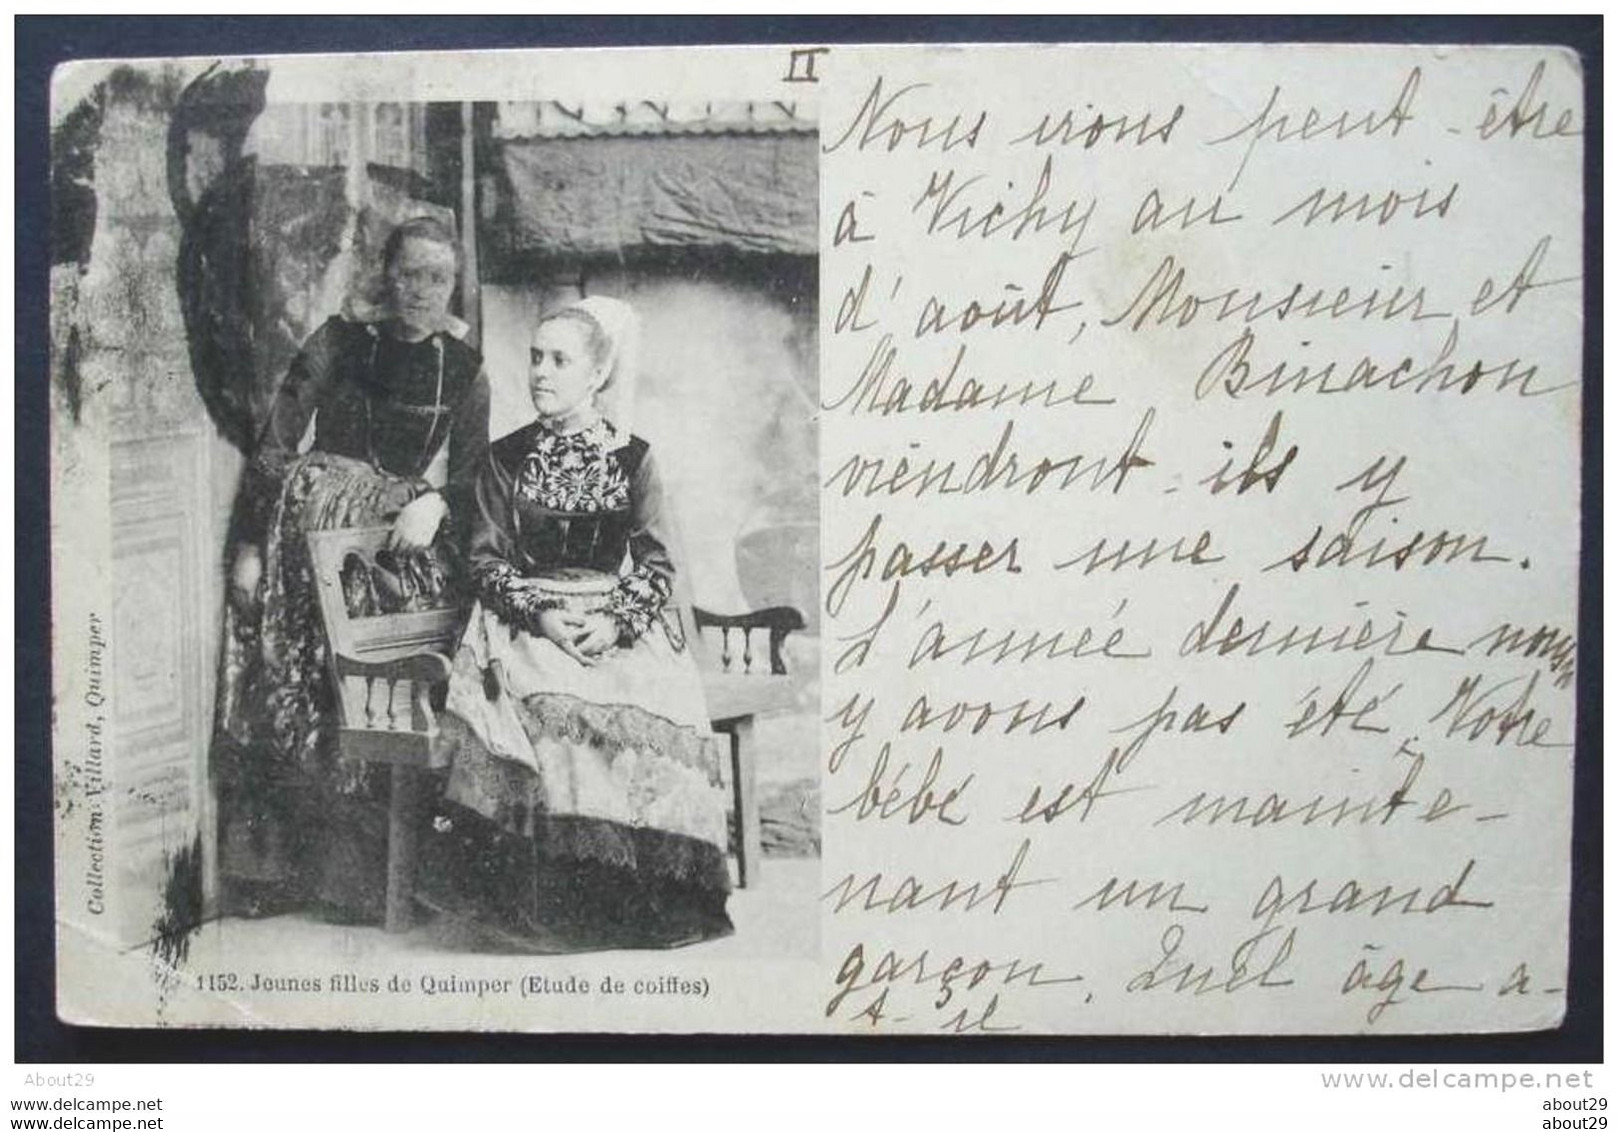 II
Nous irons peut-être
à Vichy au mois
d'août, Monsieur et
Madame Binachon
viendront-ils y
passer une saison.
L'année dernière nous n'
y avons pas été. Votre
bébé est mainte-
nant un grand
garçon. Quel âge a-
t-il
Collection Villard, Quimper
1152. Jeunes filles de Quimper (Etude de coiffes)
About29
www.delcampe.net
about29
about29
about29
about29